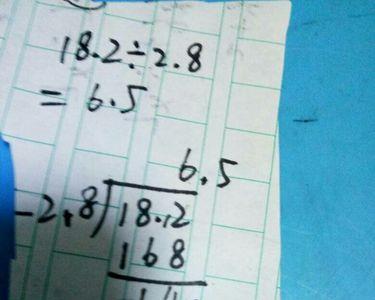 18.2÷2.8
= 6.5
6.5
2.8)18.2
168